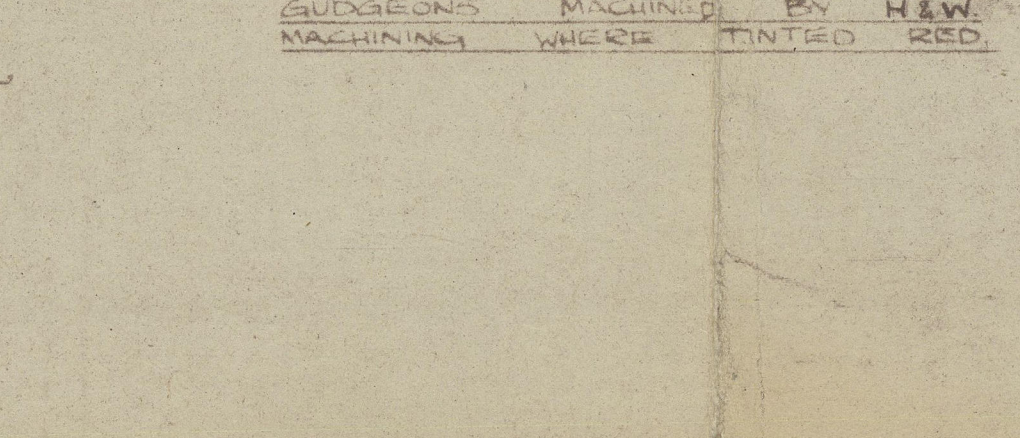 GUDGEONS MACHINED BY H & W.
MACHINING WHERE TINTED RED.